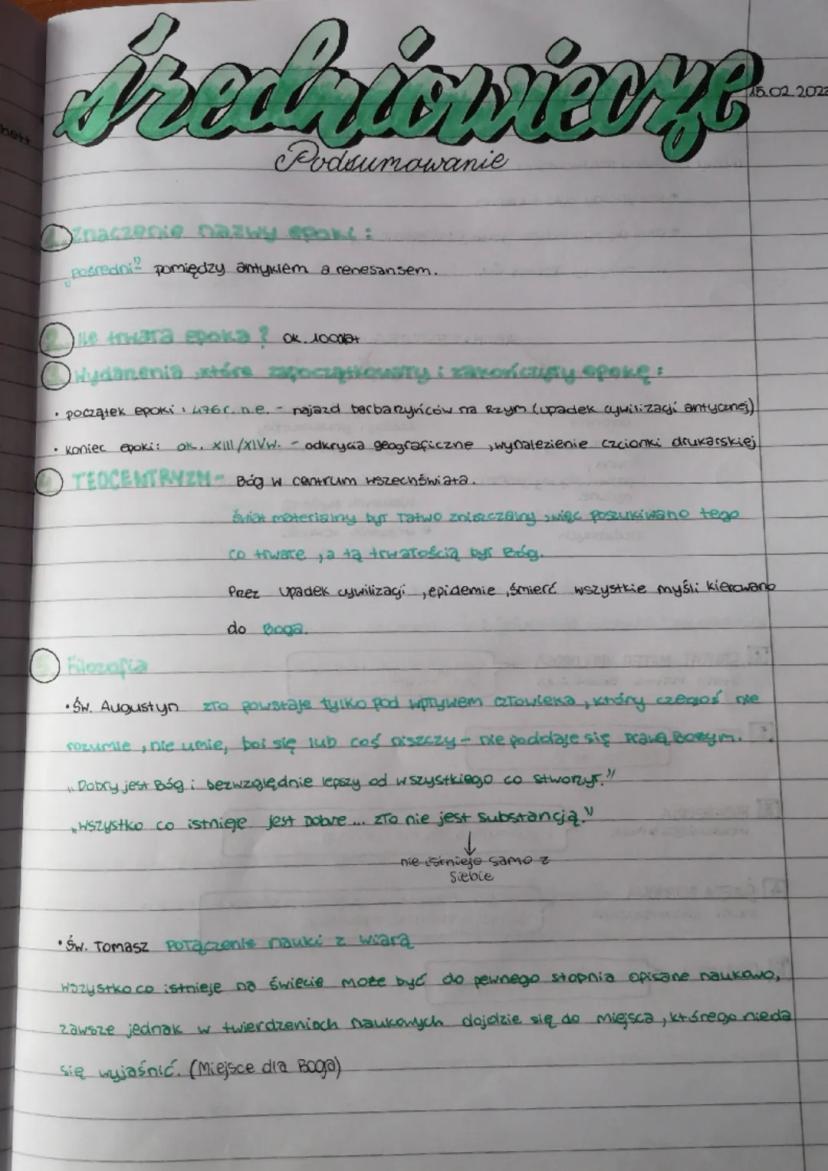 średniowiecze
15.02.202
Podsumowanie
1. Znaczenie nazwy epoki:
"pośredni" pomiędzy antykiem a renesansem.
2. Ile trwała epoka? ok. 1000lat
3. Wydarzenia, które zapoczątkowały i zakończyły epokę:
• początek epoki: 476r. n.e. - najazd barbarzyńców na Rzym (upadek cywilizacji antycznej)
• koniec epoki: ok. XIII/XIVw. - odkrycia geograficzne, wynalezienie czcionki drukarskiej
4. TEOCENTRYZM - Bóg w centrum wszechświata.
Świat materialny był łatwo zniszczalny, więc poszukiwano tego
co trwałe, a tą trwałością był Bóg.
Przez upadek cywilizacji, epidemie, śmierć wszystkie myśli kierowano
do Boga.
5. Filozofia
• Św. Augustyn zło powstaje tylko pod wpływem człowieka, który czegoś nie
rozumie, nie umie, boi się lub coś niszczy - nie poddaje się prawą Bożym.
"Dobry jest Bóg i bezwzględnie lepszy od wszystkiego co stworzył."
"Wszystko co istnieje jest Dobre... zło nie jest substancją."
↓
nie istnieje samo z
siebie
• Św. Tomasz połączenie nauki z wiarą
Wszystko co istnieje na świecie może być do pewnego stopnia opisane naukowo,
zawsze jednak w twierdzeniach naukowych dojdzie się do miejsca, którego nieda
się wyjaśnić. (Miejsce dla Boga)